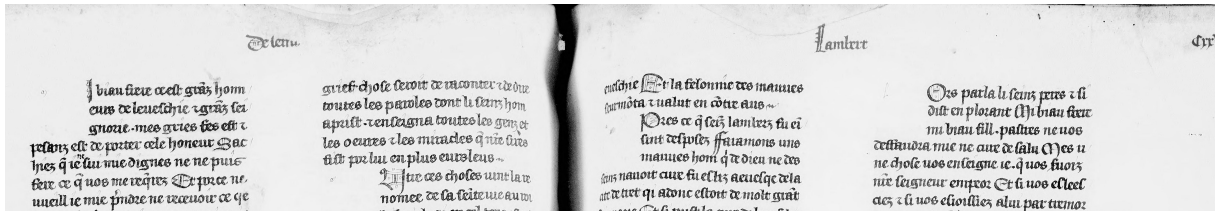 De lettu
I biau frere ce est grãz hom
eurs de leueschie ⁊ grãz sei
gnorie. mes griés fés est ⁊
pesanz est de porter cele honeur Sac
hiez q̃ ie sui mie dignes ne ne puis
fere ce q̃ uos me req̃rez Et porce ne
uueill ie mie p̃ndre ne receuoir ce q̃e
grief chose seroit de raconter ⁊ de dire
toutes les paroles dont li seinz hom
aprist ⁊ enseigna toutes les genz et
les oeures ⁊ les miracles q̃ nr̃e sires
fist por lui en plus eurs leus
tre ces choses uint la re
nomee de sa seĩte uie au roi
Lambert
Cxx
eueschie Et la felonnie des mauues
sormõta ⁊ ualut en cõtre aus
Pres ce q̃ seĩz lamberz fu ei
sint desposez ffaramons uns
mauues hom q̃ de dieu ne des
seinz nauoit cure fu esliz aeuesq̃e de la
cite de tret qui adonc estoit de molt grãt
Ors parla li seinz peres ⁊ si
dist en plorant Mi biau frere
mi biau fill. pastres ne uos
destandra mie ne cure de salu Mes u
ne chose uos enseigne ie. q̃ uos fuiez
nr̃e seigneur empeor Et si uos esleec
ciez ⁊ si uos esioissiez alui par cremor